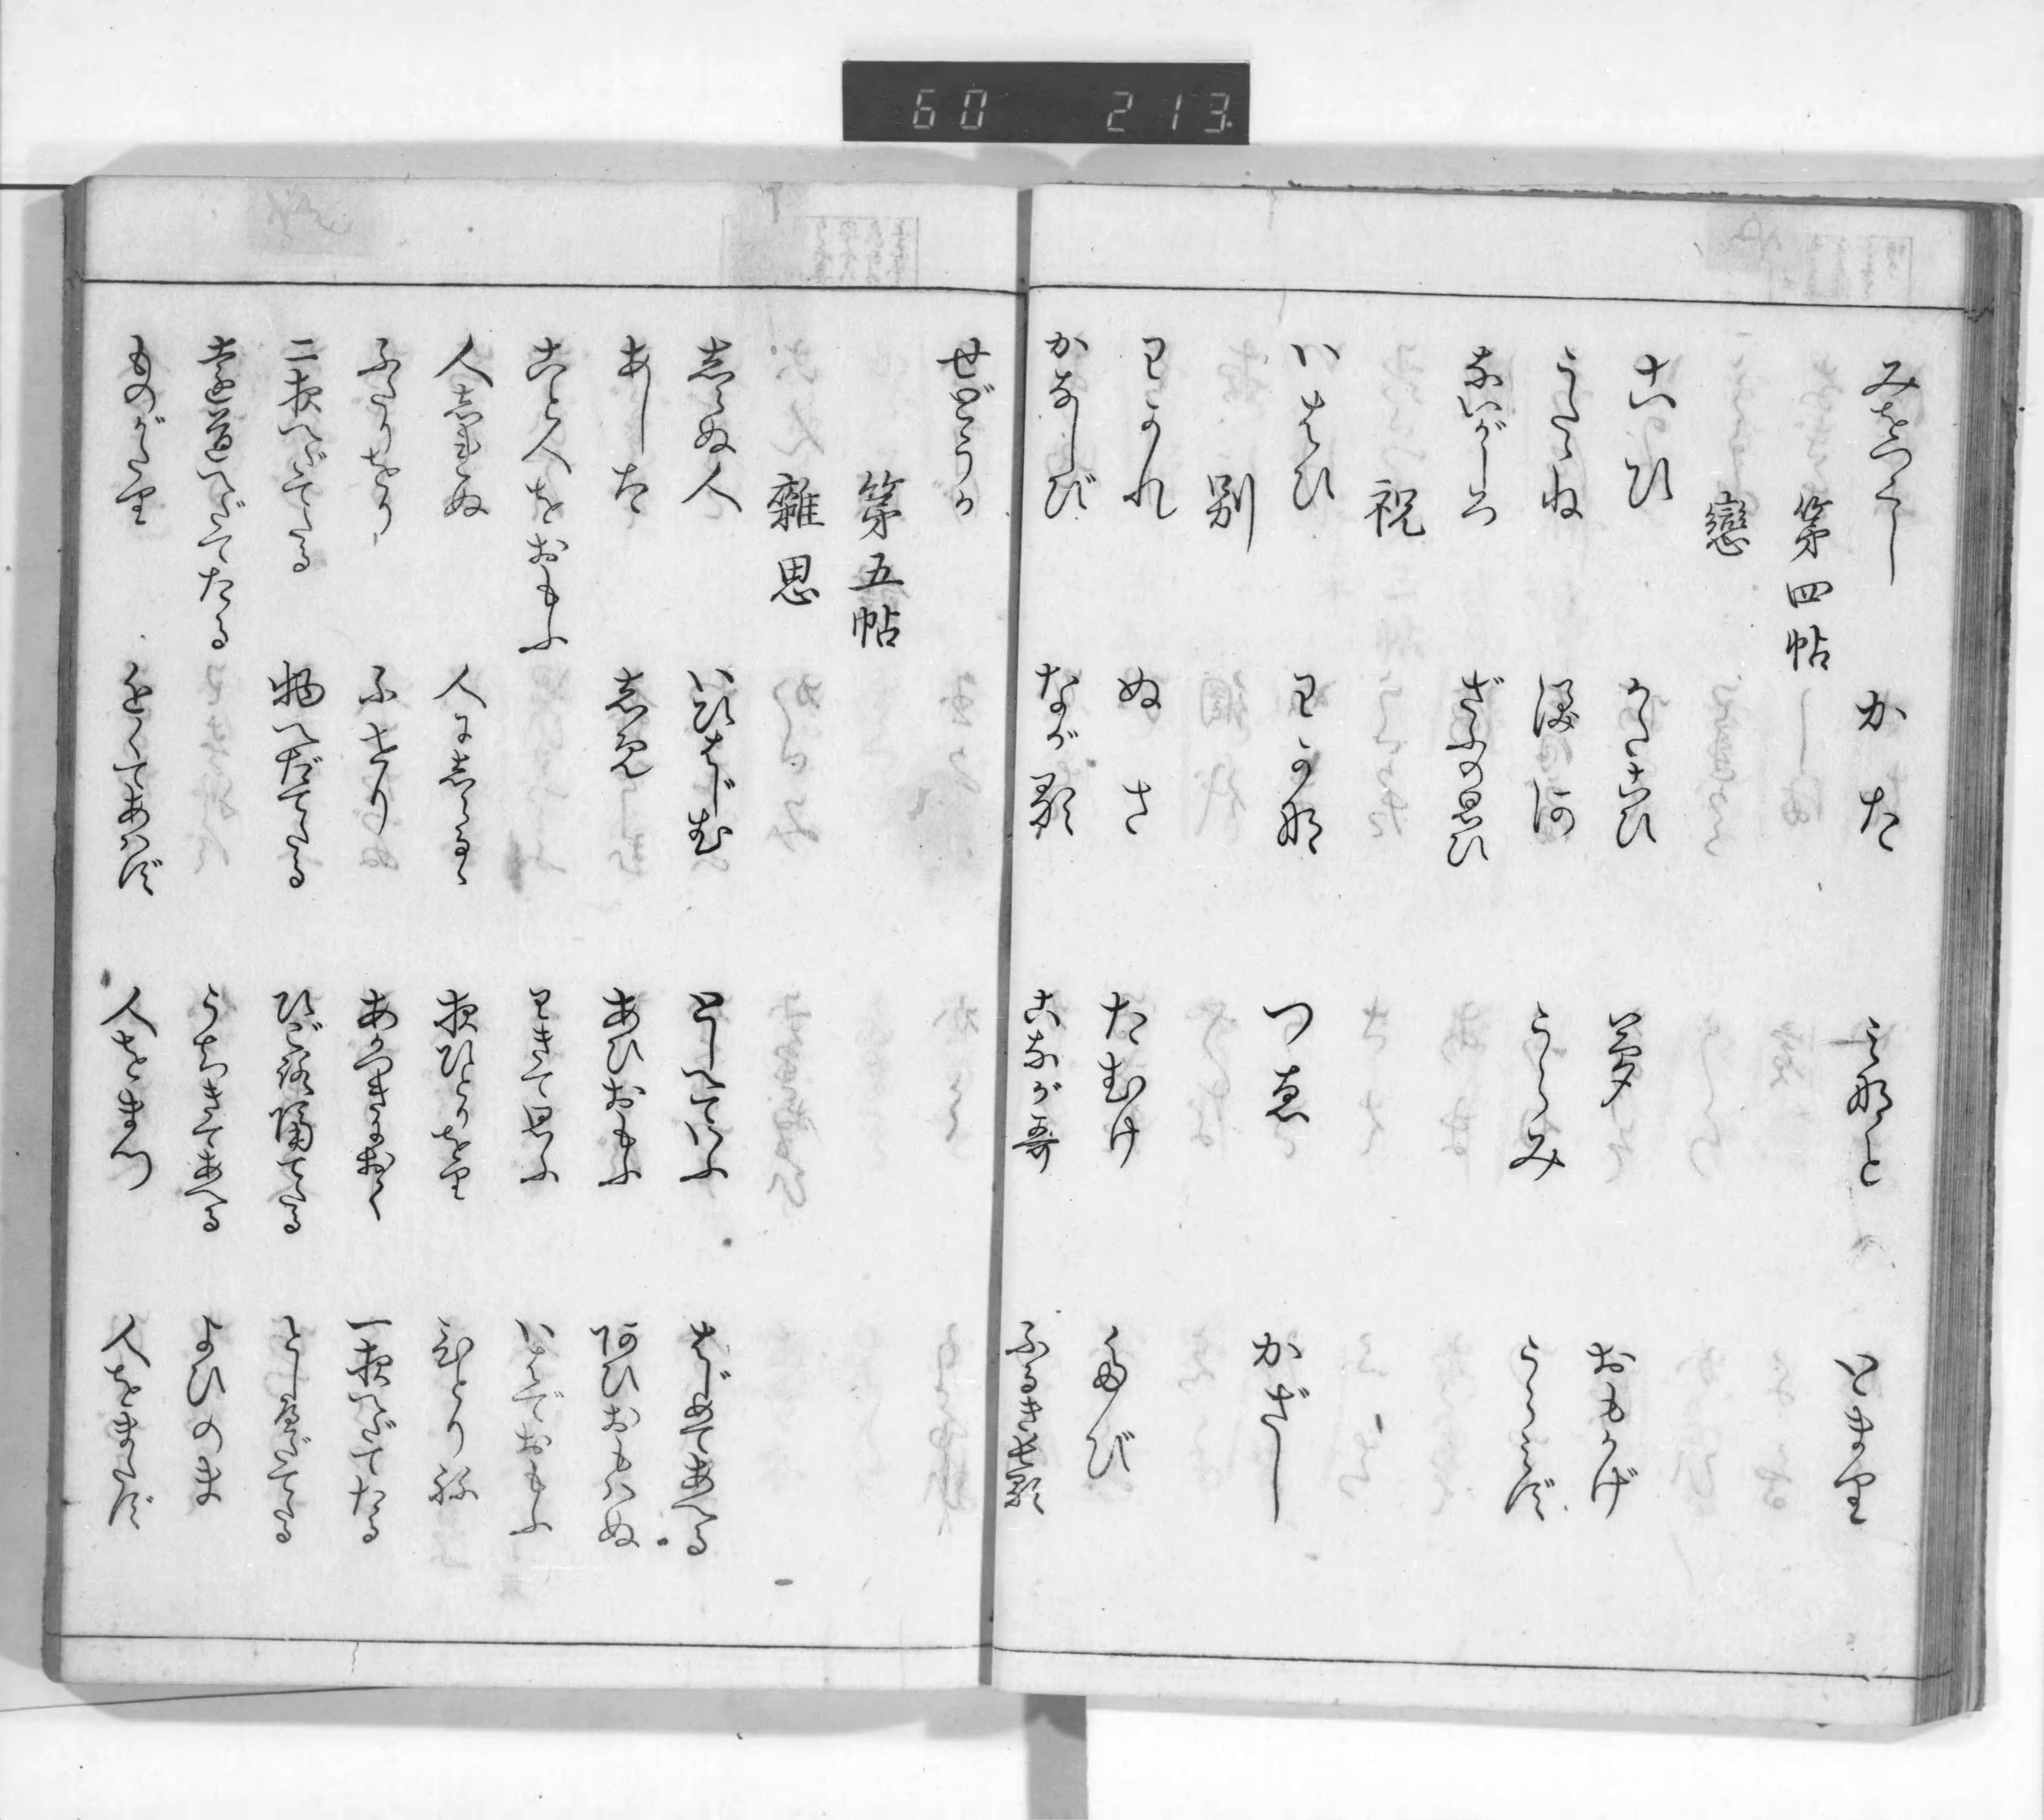 60 213
みをつくし かた みなと とまり
第四帖
戀
こひ かたこひ 夢 おもかげ
うたゝね 涙河 うらみ うらみず
ないがしろ ざふの思ひ
祝
いはひ わかな つゑ かざし
別
わかれ ぬさ たむけ たび
かなしび なが歌 こなが哥 ふるきなが歌
せどうか
第五帖
雜思
しらぬ人 いひはじむ としへていふ はじめてあへる
あした しめ あひおもふ あひおもはぬ
こと人をおもふ わきて思ふ いはでおもふ
人しれぬ 人にしらるゝ 夜ひとりをり ひとりね
ふたりをり ふせり あかつきにおく 一夜へだてたる
二夜へだてたる 物へだてたる ひごろ隔てたる としへだてたる
遠道へだてたる うちきてあへる よひのま
ものがたり ちかくてあはず 人をまつ 人をまたず